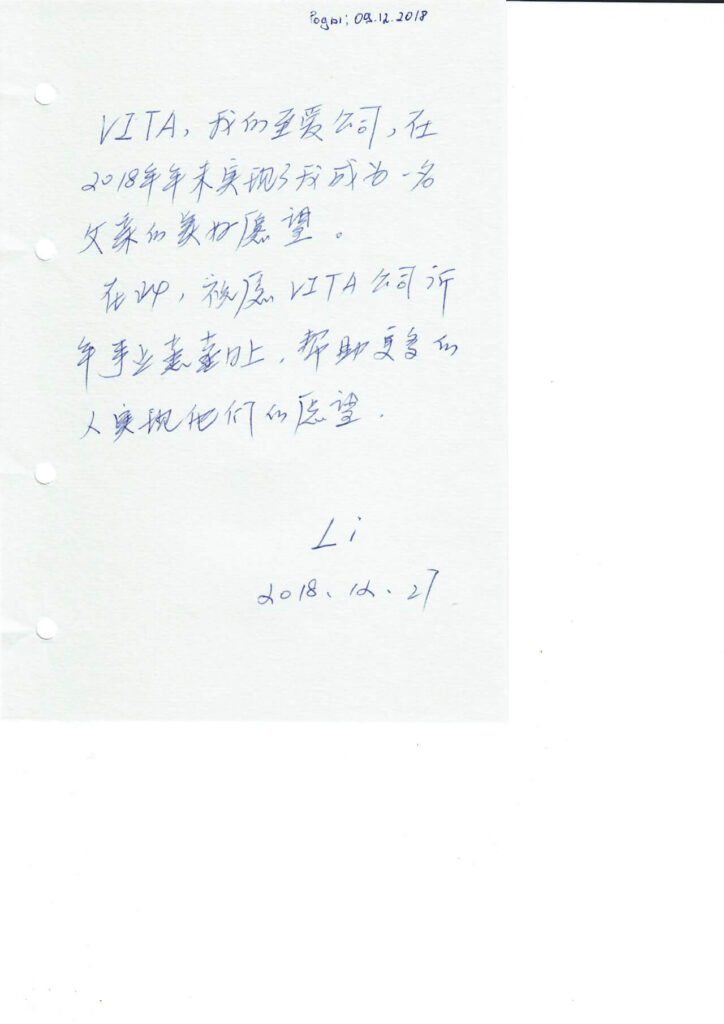 Pogoi; 09.12.2018
VITA, 我的至爱公司, 在
2018年年末实现了我成为一名
父亲的美好愿望。
在此, 祝愿 VITA 公司新
年事业蒸蒸日上, 帮助更多的
人实现他们的愿望.
Li
2018. 12. 27